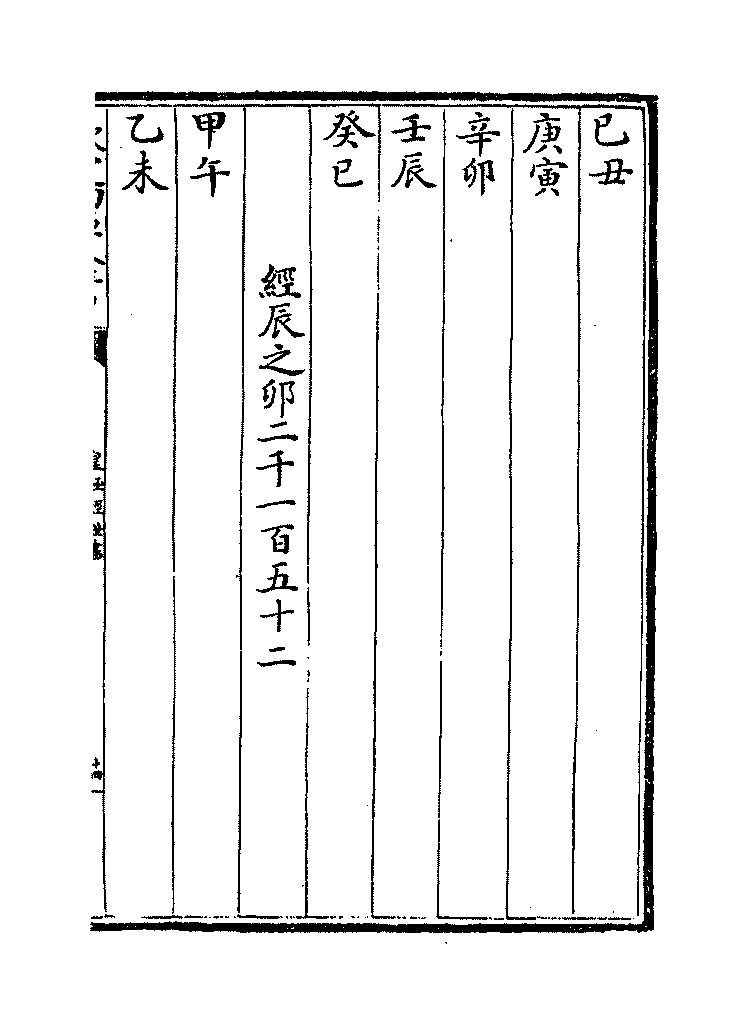 己丑
庚寅
辛卯
壬辰
癸巳
經辰之卯二千一百五十二
甲午
乙未